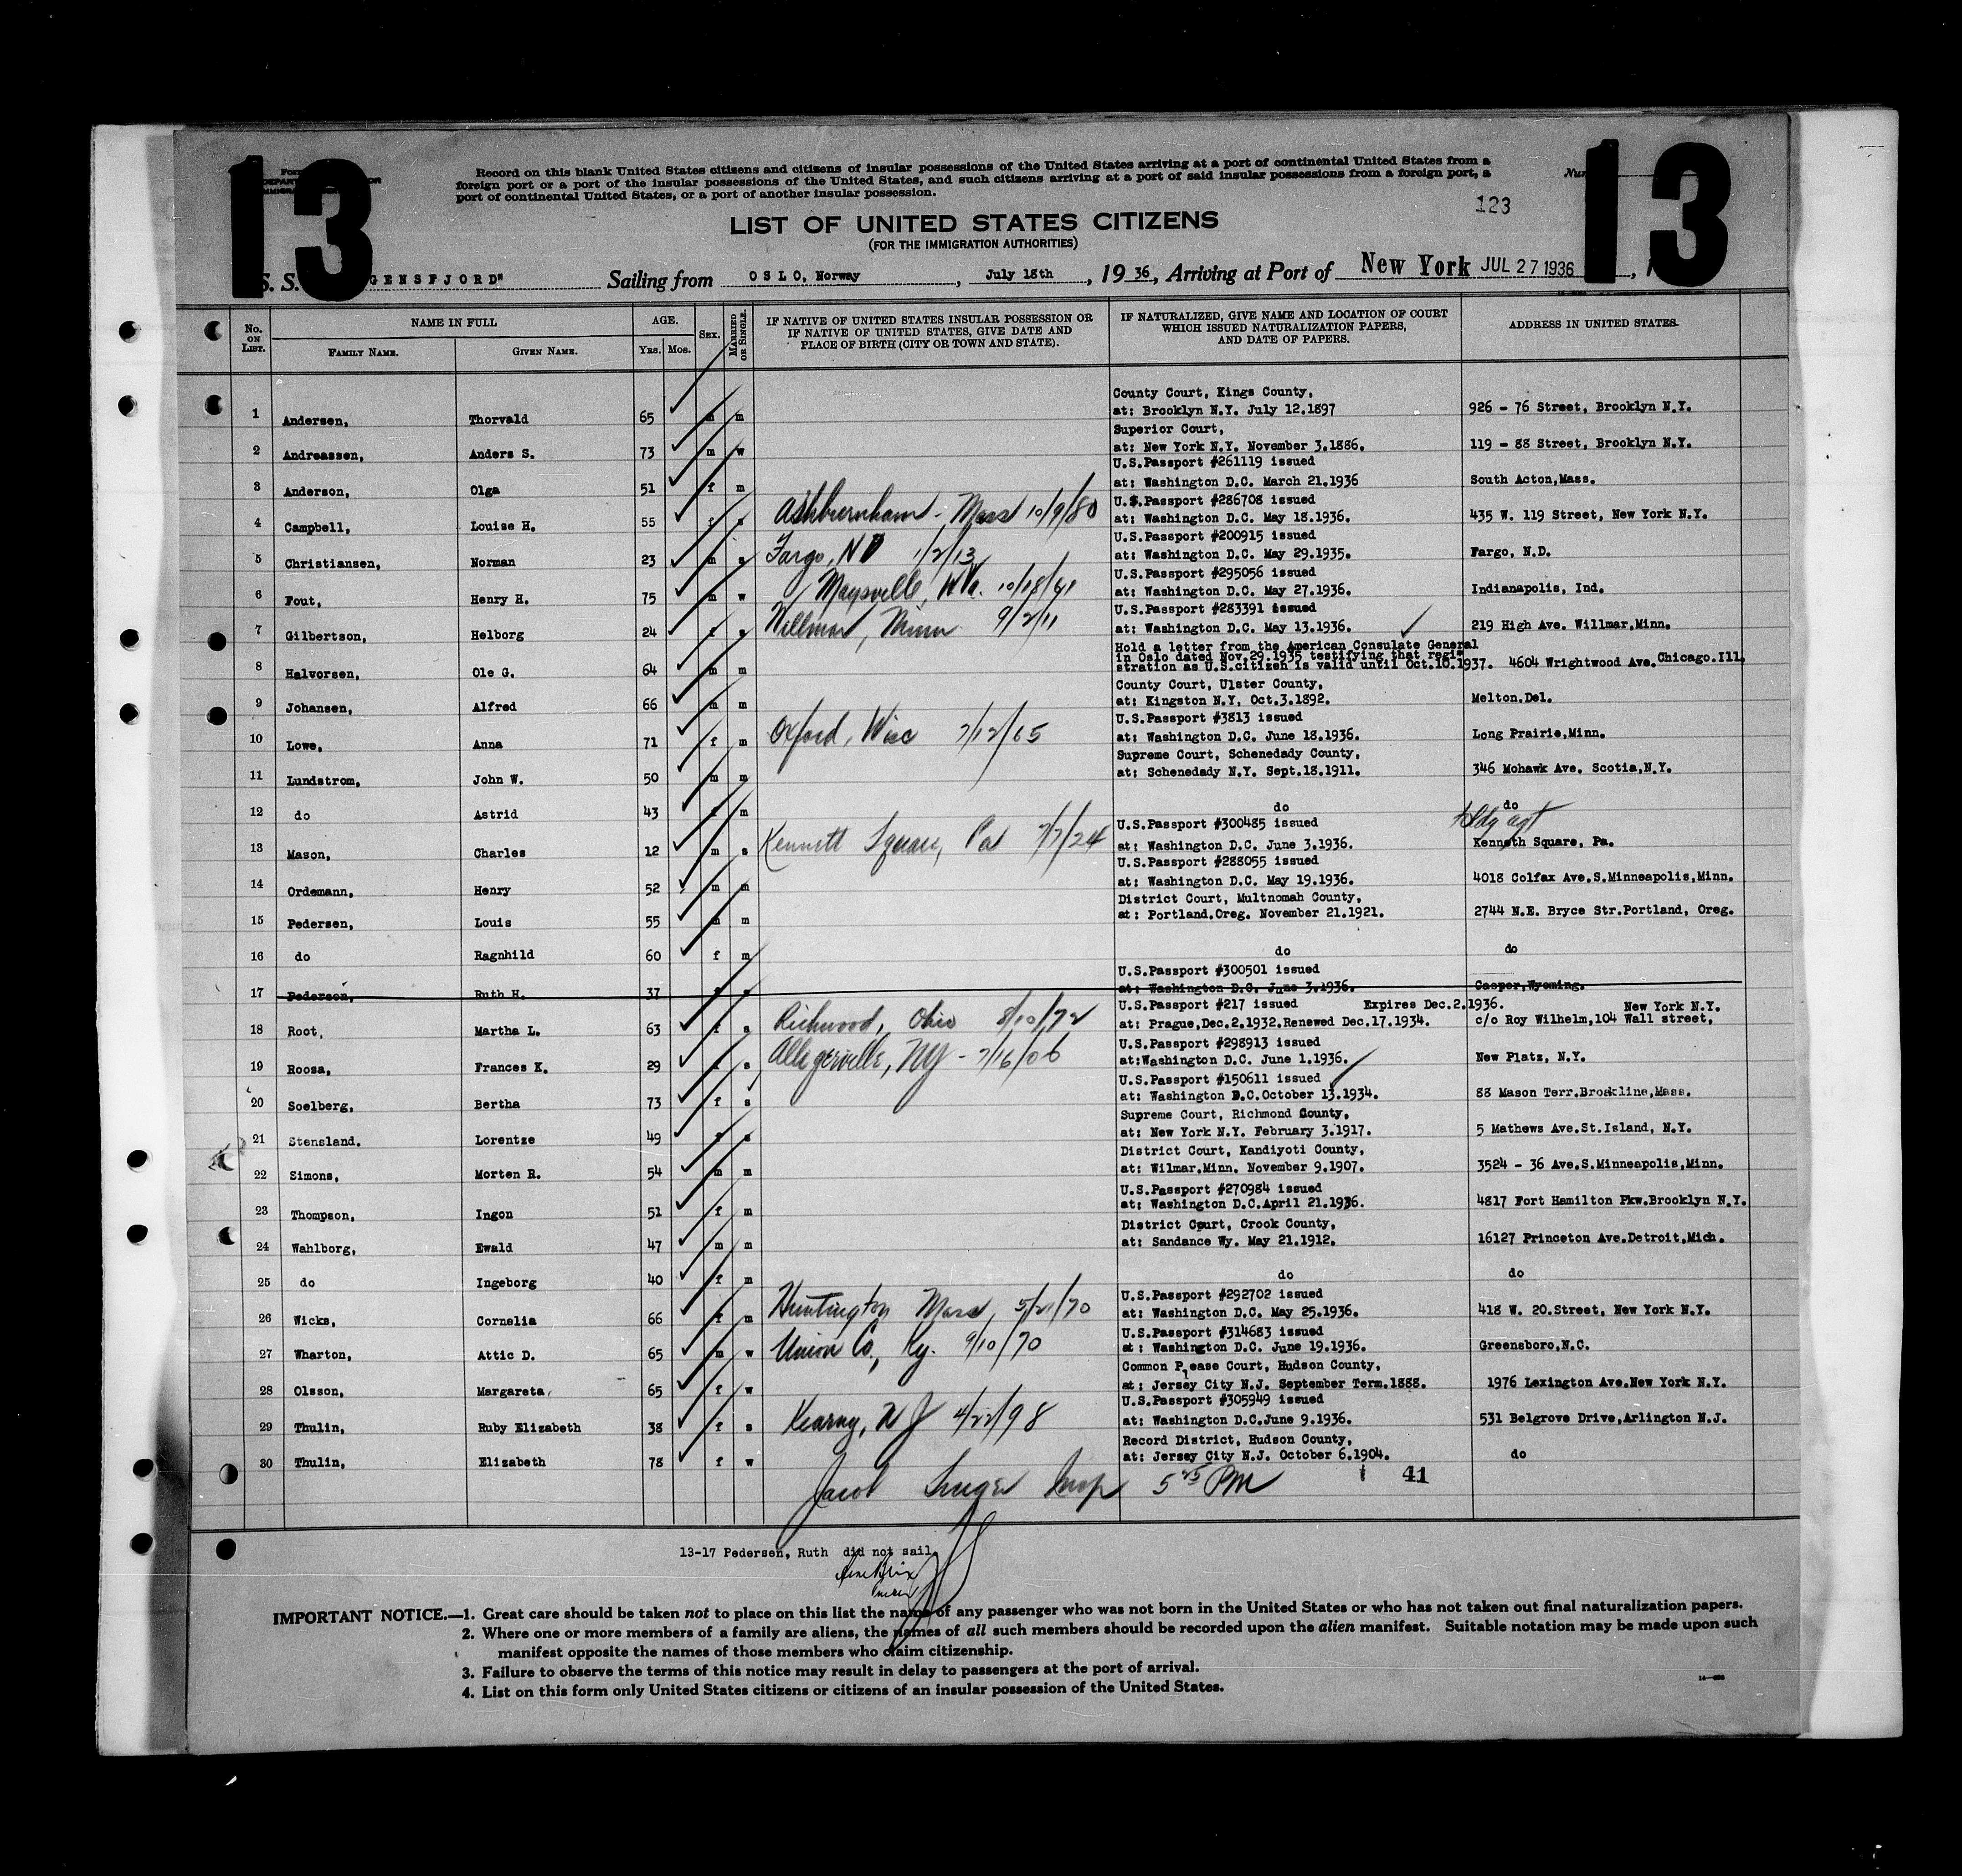 13
13
Record on this blank United States citizens and citizens of insular possessions of the United States arriving at a port of continental United States from a
foreign port or a port of the insular possessions of the United States, and such citizens arriving at a port of said insular possessions from a foreign port, a
port of continental United States, or a port of another insular possession.
123
LIST OF UNITED STATES CITIZENS
(FOR THE IMMIGRATION AUTHORITIES)
S. S. GENSFJORD" Sailing from OSLO, Norway, July 18th, 1936, Arriving at Port of New York JUL 27 1936
No. ON LIST. NAME IN FULL AGE. SEX. MARRIED OR SINGLE. IF NATIVE OF UNITED STATES INSULAR POSSESSION OR IF NATIVE OF UNITED STATES, GIVE DATE AND PLACE OF BIRTH (CITY OR TOWN AND STATE). IF NATURALIZED, GIVE NAME AND LOCATION OF COURT WHICH ISSUED NATURALIZATION PAPERS, AND DATE OF PAPERS. ADDRESS IN UNITED STATES.
FAMILY NAME. GIVEN NAME. YRS. MOS.
County Court, Kings County,
1 Andersen, Thorvald 65 m m at: Brooklyn N.Y. July 12.1897 926 - 76 Street, Brooklyn N.Y.
Superior Court,
2 Andreassen, Anders S. 73 m w at: New York N.Y. November 3.1886. 119 - 88 Street, Brooklyn N.Y.
U.S.Passport #261119 issued
3 Anderson, Olga 51 f m at: Washington D.C. March 21.1936 South Acton,Mass.
U.S.Passport #286708 issued
4 Campbell, Louise H. 55 f s Ashburnham - Mass 10/9/80 at: Washington D.C. May 18.1936. 435 W. 119 Street, New York N.Y.
U.S.Passport #200915 issued
5 Christiansen, Norman 23 m s Fargo, ND 1/2/13 at: Washington D.C. May 29.1935. Fargo, N.D.
U.S.Passport #295056 issued
6 Fout, Henry H. 75 m w Maysville, W Va. 10/18/61 at: Washington D.C. May 27.1936. Indianapolis, Ind.
U.S.Passport #283391 issued
7 Gilbertson, Helborg 24 f s Willmar, Minn 9/2/11 at: Washington D.C. May 13.1936. 219 High Ave. Willmar,Minn.
Hold a letter from the American Consulate General
in Oslo dated Nov.29.1935 testifying that regi=
8 Halvorsen, Ole G. 64 m m stration as U.S.citizen is valid until Oct.10.1937. 4604 Wrightwood Ave.Chicago.Ill.
County Court, Ulster County,
9 Johansen, Alfred 66 m m at: Kingston N.Y. Oct.3.1892. Melton.Del.
U.S.Passport #3813 issued
10 Lowe, Anna 71 f m Oxford, Wisc 7/12/65 at: Washington D.C. June 18.1936. Long Prairie,Minn.
Supreme Court, Schenedady County,
11 Lundstrom, John W. 50 m m at: Schenedady N.Y. Sept.18.1911. 346 Mohawk Ave. Scotia,N.Y.
12 do Astrid 43 f m do do
U.S.Passport #300485 issued
13 Mason, Charles 12 m s Kennett Square, Pa 7/7/24 at: Washington D.C. June 3.1936. Kenneth Square, Pa.
U.S.Passport #288055 issued
14 Ordemann, Henry 52 m m at: Washington D.C. May 19.1936. 4018 Colfax Ave.S.Minneapolis,Minn.
District Court, Multnomah County,
15 Pedersen, Louis 55 m m at: Portland.Oreg. November 21.1921. 2744 N.E. Bryce Str.Portland, Oreg.
16 do Ragnhild 60 f m do do
U.S.Passport #300501 issued
17 Pedersen, Ruth H. 37 at: Washington D.C. June 3.1936. Casper,Wyoming.
U.S.Passport #217 issued Expires Dec.2.1936. New York N.Y.
18 Root, Martha L. 63 f s Richwood, Ohio 8/10/72 at: Prague,Dec.2.1932.Renewed Dec.17.1934. c/o Roy Wilhelm,104 Wall street,
U.S.Passport #298913 issued
19 Roosa, Frances K. 29 f s Alligerville, NY - 7/16/06 at:Washington D.C. June 1.1936. New Platz, N.Y.
U.S.Passport #150611 issued
20 Soelberg, Bertha 73 f s at: Washington D.C.October 13.1934. 88 Mason Terr.Brookline,Mass.
Supreme Court, Richmond County,
21 Stensland. Lorentze 49 f s at: New York N.Y. February 3.1917. 5 Mathews Ave.St.Island, N.Y.
District Court, Kandiyoti County,
22 Simons, Morten R. 54 m m at: Wilmar,Minn. November 9.1907. 3524 - 36 Ave.S.Minneapolis,Minn.
U.S.Passport #270984 issued
23 Thompson, Ingon 51 f m at: Washington D.C.April 21.1936. 4817 Fort Hamilton Pkw.Brooklyn N.Y.
District Court, Crook County,
24 Wahlborg, Ewald 47 m m at: Sandance Wy. May 21.1912. 16127 Princeton Ave.Detroit,Mich.
25 do Ingeborg 40 f m do do
U.S.Passport #292702 issued
26 Wicks, Cornelia 66 f m Huntington Mass, 5/21/70 at: Washington D.C. May 25.1936. 418 W. 20.Street, New York N.Y.
U.S.Passport #314683 issued
27 Wharton, Attic D. 65 m w Union Co., Ky. 9/10/70 at: Washington D.C. June 19.1936. Greensboro,N.C.
Common Please Court, Hudson County,
28 Olsson, Margareta, 65 f w at: Jersey City N.J. September Term.1888. 1976 Lexington Ave.New York N.Y.
U.S.Passport #305949 issued
29 Thulin, Ruby Elizabeth 38 f s Kearny, N J 4/22/98 at: Washington D.C.June 9.1936. 531 Belgrove Drive,Arlington N.J.
Record District, Hudson County,
30 Thulin, Elizabeth 78 f w at: Jersey City N.J. October 6.1904. do
Jacob Insp 5 15 PM 41
13-17 Pedersen, Ruth did not sail.
IMPORTANT NOTICE.—1. Great care should be taken not to place on this list the name of any passenger who was not born in the United States or who has not taken out final naturalization papers.
2. Where one or more members of a family are aliens, the names of all such members should be recorded upon the alien manifest. Suitable notation may be made upon such
manifest opposite the names of those members who claim citizenship.
3. Failure to observe the terms of this notice may result in delay to passengers at the port of arrival.
4. List on this form only United States citizens or citizens of an insular possession of the United States.